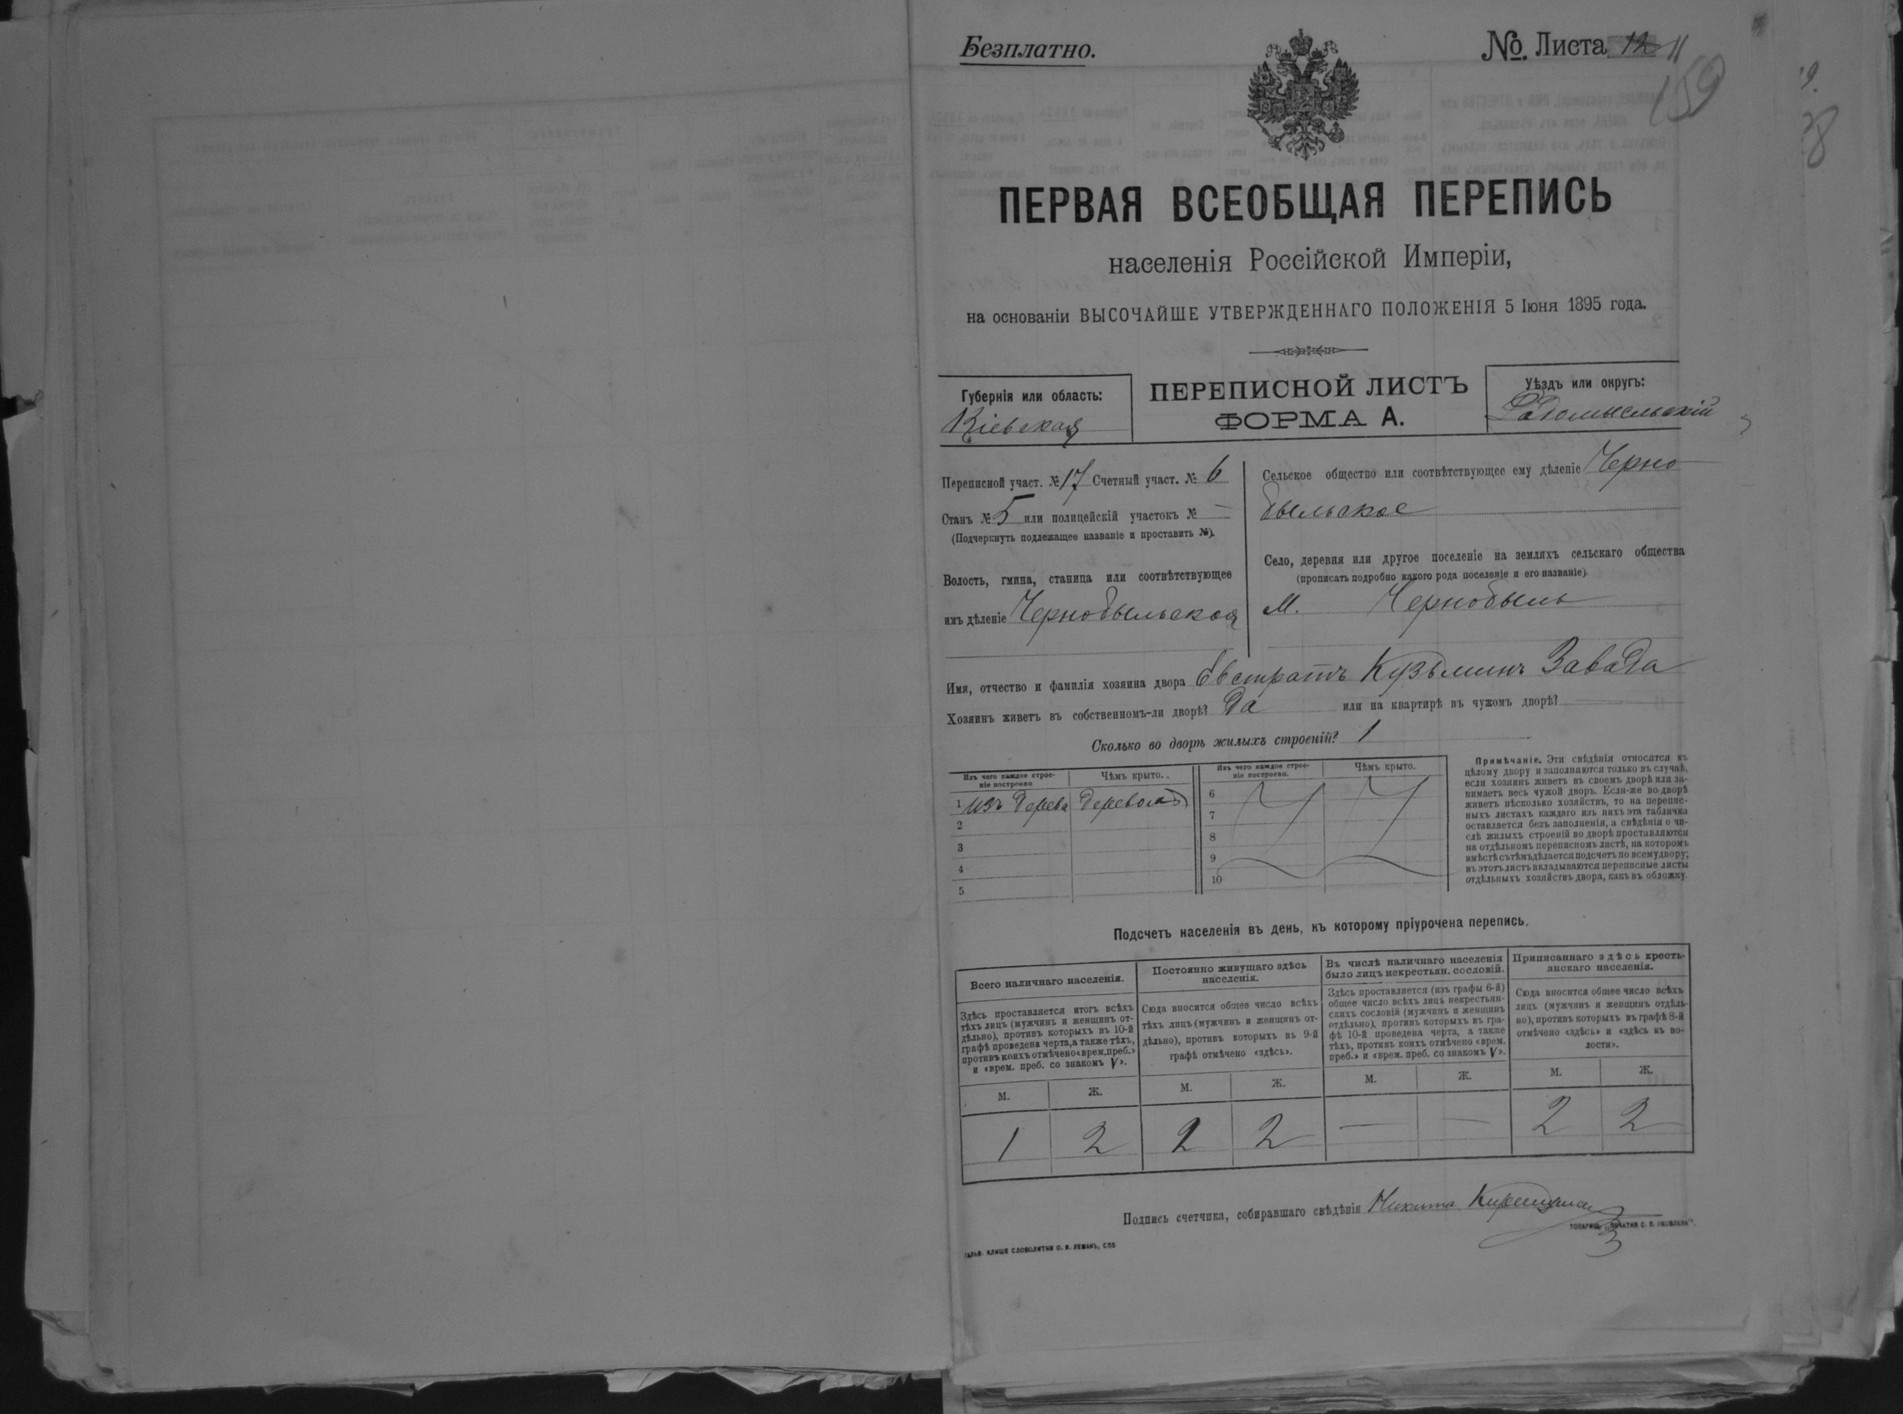 Безплатно.
№. Листа 12 11
159
ПЕРВАЯ ВСЕОБЩАЯ ПЕРЕПИСЬ
населенія Россійской Имперіи,
на основаніи ВЫСОЧАЙШЕ УТВЕРЖДЕННАГО ПОЛОЖЕНІЯ 5 Іюня 1895 года.
Губернія или область:
Кіевская
ПЕРЕПИСНОЙ ЛИСТЪ
ФОРМА А.
Уѣздъ или округъ:
Радомысльскій
Переписной участ. № 17 Счетный участ. № 6
Станъ № 5 или полицейскій участокъ № —
(Подчеркнуть подлежащее названіе и проставить №).
Волость, гмина, станица или соотвѣтствующее
имъ дѣленіе Чернобыльская
Сельское общество или соотвѣтствующее ему дѣленіе Черно
быльское
Село, деревня или другое поселеніе на земляхъ сельскаго общества
(прописать подробно какого рода поселеніе и его названіе)
М. Чернобыль
Имя, отчество и фамилія хозяина двора Евстратъ Кузьминъ Завада
Хозяинъ живетъ въ собственномъ-ли дворѣ? Да или на квартирѣ въ чужомъ дворѣ?
Сколько во дворѣ жилыхъ строеній? 1
Изъ чего каждое строе-
ніе построено
Чѣмъ крыто.
Изъ чего каждое строе-
ніе построено.
Чѣмъ крыто.
1 изъ дерева деревомъ
2
3
4
5
6
7
8
9
10
Примѣчаніе. Эти свѣдѣнія относятся къ
цѣлому двору и заполняются только въ случаѣ,
если хозяинъ живетъ въ своемъ дворѣ или за-
нимаетъ весь чужой дворъ. Если-же во дворѣ
живетъ нѣсколько хозяйствъ, то на перепис-
ныхъ листахъ каждаго изъ нихъ эта табличка
оставляется безъ заполненія, а свѣдѣнія о чи-
слѣ жилыхъ строеній во дворѣ проставляются
на отдѣльномъ переписномъ листѣ, на которомъ
вмѣстѣ съ тѣмъ дѣлается подсчетъ по всему двору;
въ этотъ листъ вкладываются переписные листы
отдѣльныхъ хозяйствъ двора, какъ въ обложку.
Подсчетъ населенія въ день, къ которому пріурочена перепись.
Всего наличнаго населенія.
Здѣсь проставляется итогъ всѣхъ
тѣхъ лицъ (мужчинъ и женщинъ от-
дѣльно), противъ которыхъ въ 10-й
графѣ проведена черта, а также тѣхъ,
противъ коихъ отмѣчено «врем. преб.»
и «врем. преб. со знакомъ V».
Постоянно живущаго здѣсь
населенія.
Сюда вносится общее число всѣхъ
тѣхъ лицъ (мужчинъ и женщинъ от-
дѣльно), противъ которыхъ въ 9-й
графѣ отмѣчено «здѣсь».
Въ числѣ наличнаго населенія
было лицъ некрестьян. сословій.
Здѣсь проставляется (изъ графы 6-й)
общее число всѣхъ лицъ некрестьян-
скихъ сословій (мужчинъ и женщинъ
отдѣльно), противъ которыхъ въ гра-
фѣ 10-й проведена черта, а также
тѣхъ, противъ коихъ отмѣчено «врем.
преб.» и «врем. преб. со знакомъ V».
Приписаннаго здѣсь кресть-
янскаго населенія.
Сюда вносится общее число всѣхъ
лицъ (мужчинъ и женщинъ отдѣль-
но), противъ которыхъ въ графѣ 8-й
отмѣчено «здѣсь» и «здѣсь въ во-
лости».
М. Ж. М. Ж. М. Ж. М. Ж.
1 2 2 2 — — 2 2
Подпись счетчика, собиравшаго свѣдѣнія Никита
ГАЛЬВ. КЛИШЕ СЛОВОЛИТНИ О. И. ЛЕМАНЪ, СПБ